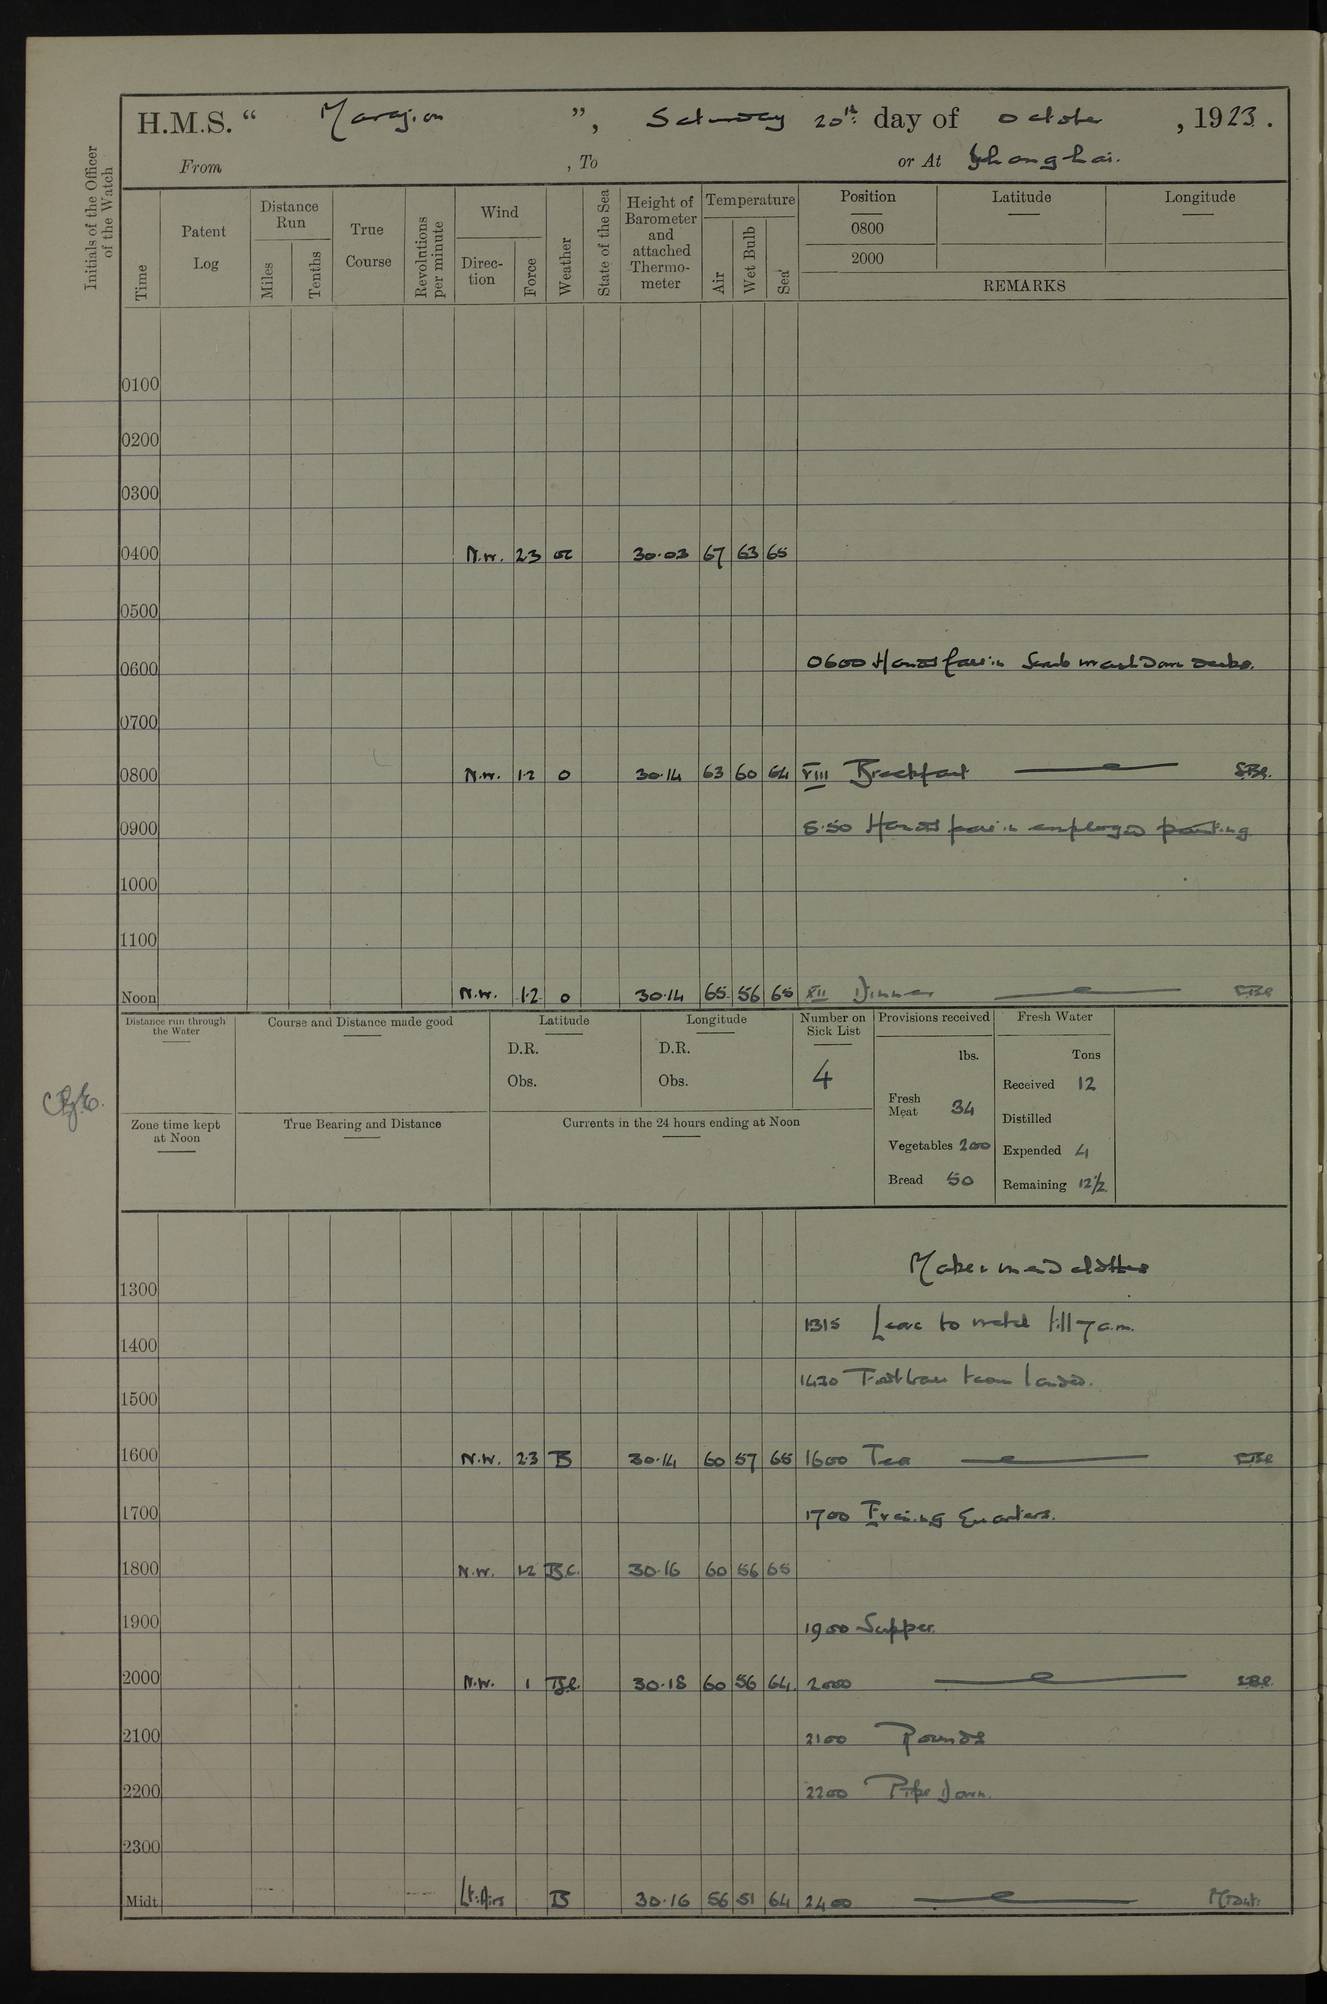 H.M.S. “ Marazion ”, Saturday 20th day of October, 1923.
From , To or At Shanghai.
Initials of the Officer of the Watch
Time
Patent Log
Distance Run
Miles
Tenths
True Course
Revolutions per minute
Wind
Direction
Force
Weather
State of the Sea
Height of Barometer and attached Thermometer
Temperature
Air
Wet Bulb
Sea
Position
Latitude
Longitude
0800
2000
REMARKS
0100
0200
0300
0400 N.W. 2.3 oc 30.03 67 63 65
0500
0600 0600 Hands fall in Scrub & wash down decks.
0700
0800 N.W. 1.2 o 30.14 63 60 64 VIII Breakfast
0900 8.50 Hands fall in employed painting
1000
1100
Noon N.W. 1.2 o 30.14 65 56 65 XII Dinner
Distance run through the Water
Course and Distance made good
Latitude
D.R.
Obs.
Longitude
D.R.
Obs.
Number on Sick List
4
Provisions received
lbs.
Fresh Meat 34
Vegetables 200
Bread 50
Fresh Water
Tons
Received 12
Distilled
Expended 4
Remaining 12½
Zone time kept at Noon
True Bearing and Distance
Currents in the 24 hours ending at Noon
Make & mend clothes
1300
1315 Leave to watch till 7 a.m.
1400
1430 Football team landed.
1500
1600 N.W. 2.3 B 30.14 60 57 65 1600 Tea
1700 1700 Evening Quarters.
1800 N.W. 1.2 B.C. 30.16 60 56 65
1900 1900 Supper.
2000 N.W. 1 B.C. 30.18 60 56 64 2000
2100 2100 Rounds
2200 2200 Pipe Down.
2300
Midt Lt. Airs B 30.16 56 51 64 2400